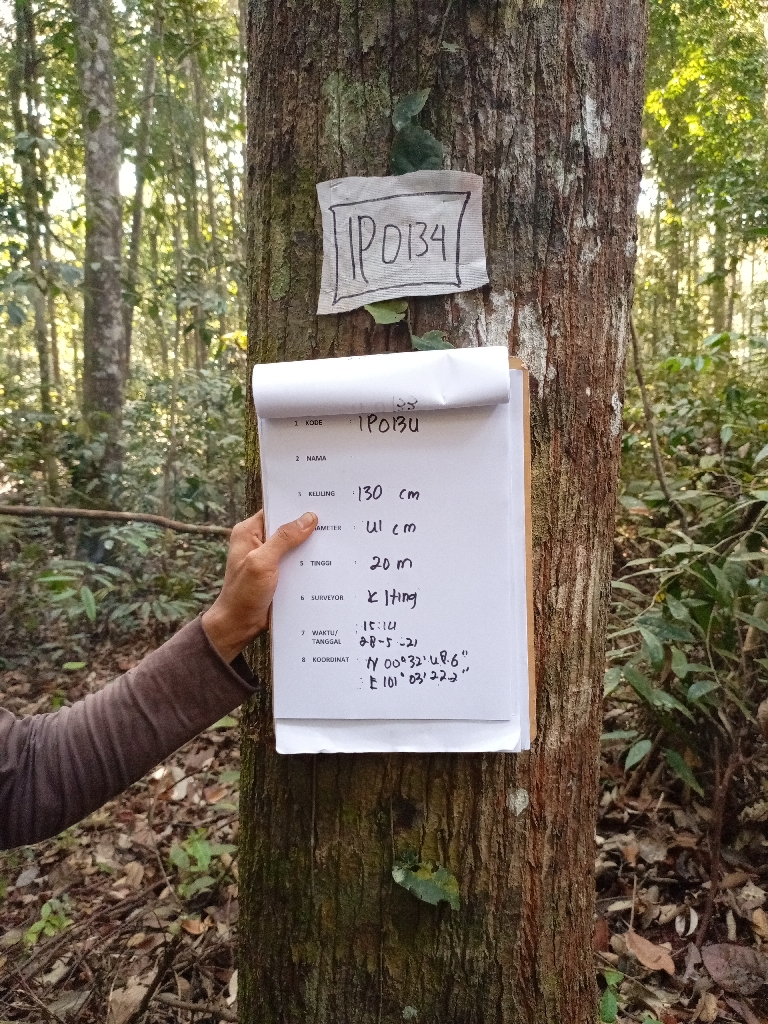 IPO134
1 KODE : IPO134
2 NAMA
3 KELILING : 130 cm
AMETER : 41 cm
5 TINGGI : 20 m
6 SURVEYOR : Kiting
7 WAKTU/ : 15:14
TANGGAL 28-5-21
8 KOORDINAT : N 00°32'48.6"
: E 101°03'22.2"